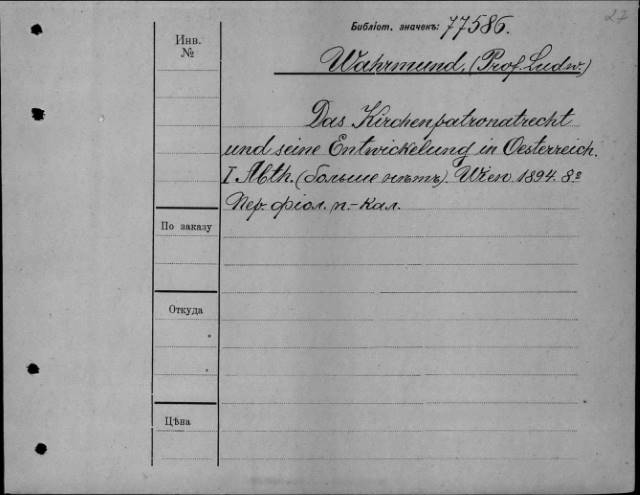 27
Инв.
№
Библіот. значекъ: 77586.
Wahrmund, (Prof. Ludw.)
Das Kirchenpatronatrecht
und seine Entwickelung in Oesterreich.
I Abth. (больше нѣтъ). Wien 1894. 8º
Пер. фіол. п.-кал.
По заказу
Откуда
Цѣна